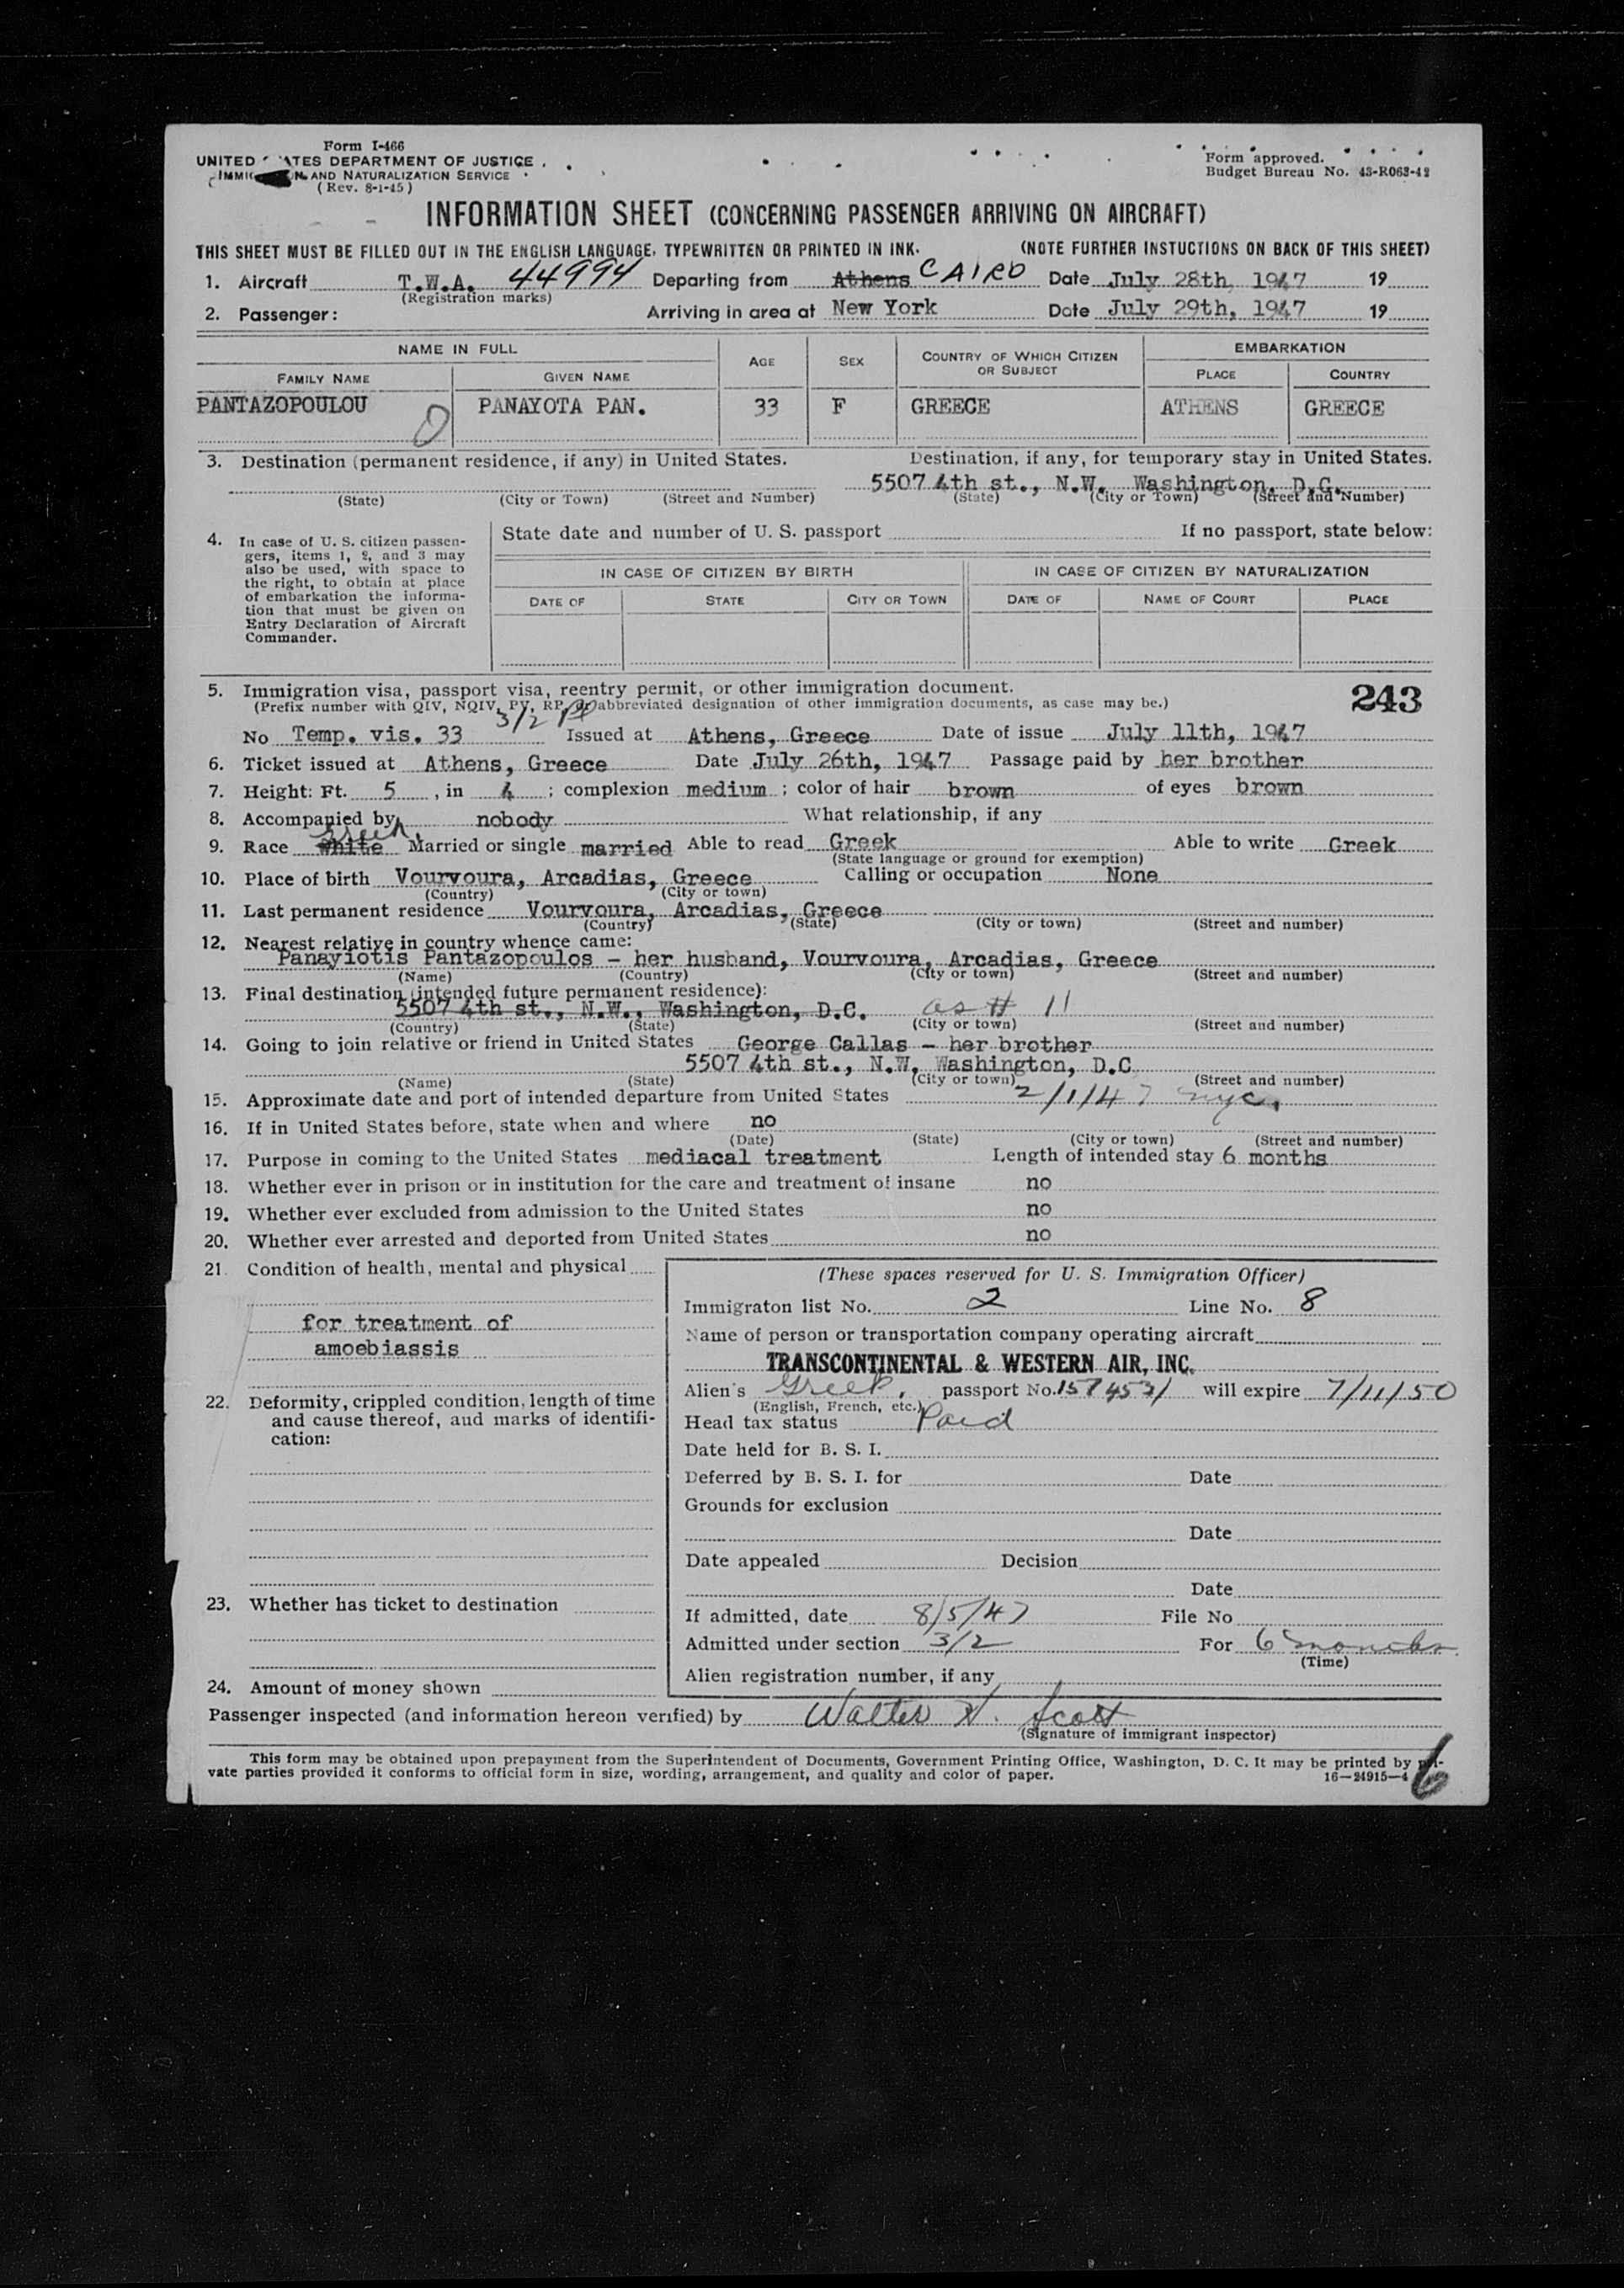 Form I-466
UNITED STATES DEPARTMENT OF JUSTICE
IMMIGRATION AND NATURALIZATION SERVICE
(Rev. 8-1-45)
Form approved.
Budget Bureau No. 43-R063-42
INFORMATION SHEET (CONCERNING PASSENGER ARRIVING ON AIRCRAFT)
THIS SHEET MUST BE FILLED OUT IN THE ENGLISH LANGUAGE, TYPEWRITTEN OR PRINTED IN INK. (NOTE FURTHER INSTUCTIONS ON BACK OF THIS SHEET)
1. Aircraft T.W.A. 44994 Departing from Athens CAIRO Date July 28th, 1947 19
(Registration marks)
2. Passenger: Arriving in area at New York Date July 29th, 1947 19
NAME IN FULL AGE SEX COUNTRY OF WHICH CITIZEN OR SUBJECT EMBARKATION
FAMILY NAME GIVEN NAME PLACE COUNTRY
PANTAZOPOULOU PANAYOTA PAN. 33 F GREECE ATHENS GREECE
3. Destination (permanent residence, if any) in United States. Destination, if any, for temporary stay in United States.
5507 4th st., N.W. Washington, D.C.
(State) (City or Town) (Street and Number) (State) (City or Town) (Street and Number)
4. In case of U. S. citizen passen-
gers, items 1, 2, and 3 may
also be used, with space to
the right, to obtain at place
of embarkation the informa-
tion that must be given on
Entry Declaration of Aircraft
Commander.
State date and number of U. S. passport If no passport, state below:
IN CASE OF CITIZEN BY BIRTH IN CASE OF CITIZEN BY NATURALIZATION
DATE OF STATE CITY OR TOWN DATE OF NAME OF COURT PLACE
5. Immigration visa, passport visa, reentry permit, or other immigration document. 243
(Prefix number with QIV, NQIV, PV, RP, or abbreviated designation of other immigration documents, as case may be.)
3/2
No Temp. vis. 33 Issued at Athens, Greece Date of issue July 11th, 1947
6. Ticket issued at Athens, Greece Date July 26th, 1947 Passage paid by her brother
7. Height: Ft. 5, in 4; complexion medium; color of hair brown of eyes brown
8. Accompanied by nobody What relationship, if any
Greek.
9. Race white Married or single married Able to read Greek Able to write Greek
(State language or ground for exemption)
10. Place of birth Vourvoura, Arcadias, Greece Calling or occupation None
(Country) (City or town)
11. Last permanent residence Vourvoura, Arcadias, Greece
(Country) (State) (City or town) (Street and number)
12. Nearest relative in country whence came:
Panayiotis Pantazopoulos - her husband, Vourvoura, Arcadias, Greece
(Name) (Country) (City or town) (Street and number)
13. Final destination (intended future permanent residence):
5507 4th st., N.W., Washington, D.C. as # 11
(Country) (State) (City or town) (Street and number)
14. Going to join relative or friend in United States George Callas - her brother
5507 4th st., N.W. Washington, D.C
(Name) (State) (City or town) (Street and number)
15. Approximate date and port of intended departure from United States 2/1/47 nyc.
16. If in United States before, state when and where no
(Date) (State) (City or town) (Street and number)
17. Purpose in coming to the United States mediacal treatment Length of intended stay 6 months
18. Whether ever in prison or in institution for the care and treatment of insane no
19. Whether ever excluded from admission to the United States no
20. Whether ever arrested and deported from United States no
21. Condition of health, mental and physical
for treatment of
amoebiassis
22. Deformity, crippled condition, length of time
and cause thereof, and marks of identifi-
cation:
23. Whether has ticket to destination
24. Amount of money shown
(These spaces reserved for U. S. Immigration Officer)
Immigraton list No. 2 Line No. 8
Name of person or transportation company operating aircraft
TRANSCONTINENTAL & WESTERN AIR, INC.
Alien's Greek. passport No. will expire 7/11/50
(English, French, etc.)
Head tax status Paid
Date held for B. S. I.
Deferred by B. S. I. for Date
Grounds for exclusion
Date
Date appealed Decision
Date
If admitted, date 8/5/47 File No
Admitted under section 3/2 For 6 months
(Time)
Alien registration number, if any
Passenger inspected (and information hereon verified) by Walter H. Scott
(Signature of immigrant inspector)
This form may be obtained upon prepayment from the Superintendent of Documents, Government Printing Office, Washington, D. C. It may be printed by pri-
vate parties provided it conforms to official form in size, wording, arrangement, and quality and color of paper. 16—24915-4
6